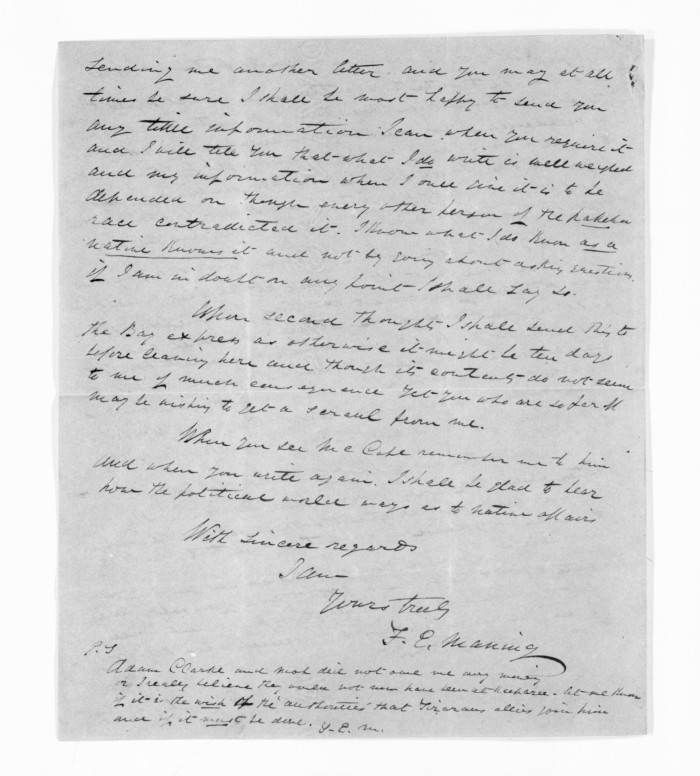 sending me another letter. and you may at all
times be sure I shall be most happy to send you
any little information I can when you require it
and I will tell you that what I do write is well weighed
and my information when I once give it is to be
depended on though every other person of the pakeha
race contradicted it. I know what I do know as a
native knows it and not by going about asking questions.
if I am in doubt on any point I shall say so.
When second thought I shall send this to
the Bay express as otherwise it might be ten days
before leaving here and though its contents do not seem
to me of much consequence yet you who are so far off
may be wishing to get a scrawl from me.
When you see McCabe remember me to him
and when you write again. I shall be glad to hear
how the political world wags as to native affairs
With sincere regards
I am
Yours truly
F. E. Maning
P.S
Adam Clarke and Moh did not owe me any money
or I really believe they would not now have been at. let me know
if it is the wish of the authorities that allies join him
and if it must be done. F. E. M.